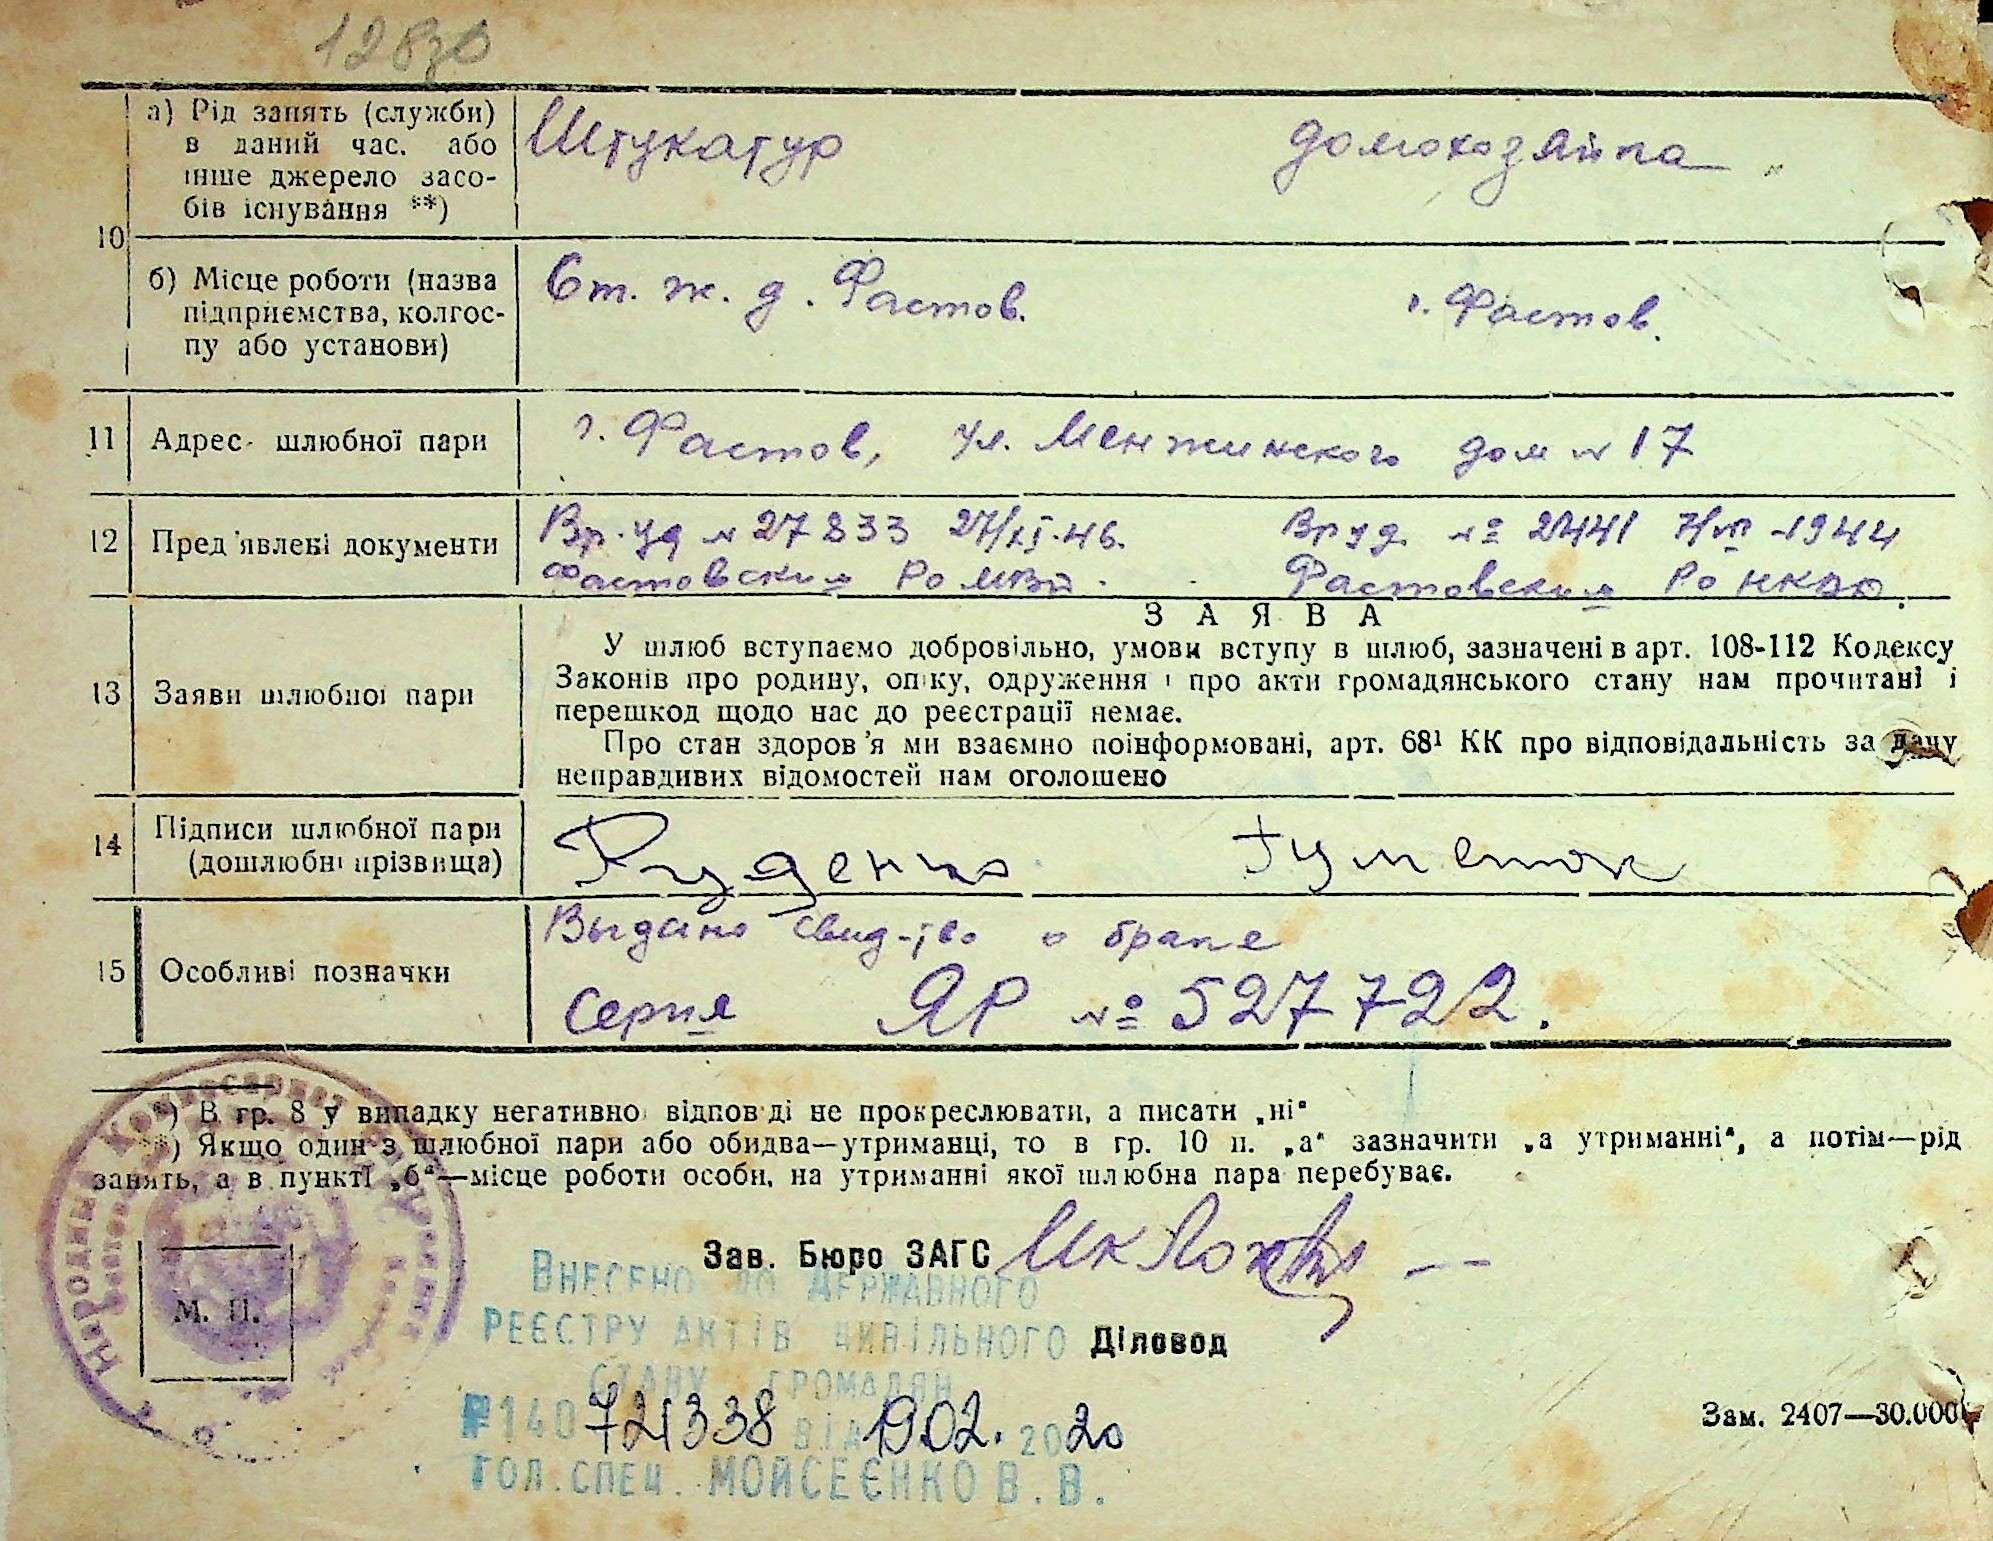 128зв
10
а) Рід занять (служби)
в даний час. або
інше джерело засо-
бів існування **)
Штукатур домохозяйка
б) Місце роботи (назва
підприємства, колгос-
пу або установи)
Ст. ж. д. Фастов. г. Фастов.
11 Адрес шлюбної пари г. Фастов, ул. Менжинского дом № 17
12 Пред'явлені документи
Вр. уд № 27833 27/XI-46. Вр уд. № 2441 7/VI-1944
Фастовским РО МВД. Фастовским РО НКВД.
ЗАЯВА
13 Заяви шлюбної пари
У шлюб вступаємо добровільно, умови вступу в шлюб, зазначені в арт. 108-112 Кодексу
Законів про родину, опіку, одруження і про акти громадянського стану нам прочитані і
перешкод щодо нас до реєстрації немає.
Про стан здоров'я ми взаємно поінформовані, арт. 68¹ КК про відповідальність за дачу
неправдивих відомостей нам оголошено
14 Підписи шлюбної пари
(дошлюбні прізвища)
Руденко Гуменюк
15 Особливі позначки
Выдано свид-тво о браке
Серия ЯР № 527722.
*) В гр. 8 у випадку негативної відповіді не прокреслювати, а писати „ні“
**) Якщо один з шлюбної пари або обидва—утриманці, то в гр. 10 п. „а“ зазначити „а утриманні“, а потім—рід
занять, а в пункті „б“—місце роботи особи, на утриманні якої шлюбна пара перебуває.
Народний Комісаріат
Зав. Бюро ЗАГС
М. П.
Діловод
ВНЕСЕНО ДО ДЕРЖАВНОГО
РЕЄСТРУ АКТІВ ЦИВІЛЬНОГО
СТАНУ ГРОМАДЯН
№140 721338 ВІД 19.02. 2020
ГОЛ. СПЕЦ. МОЙСЕЄНКО В. В.
Зам. 2407—30.000